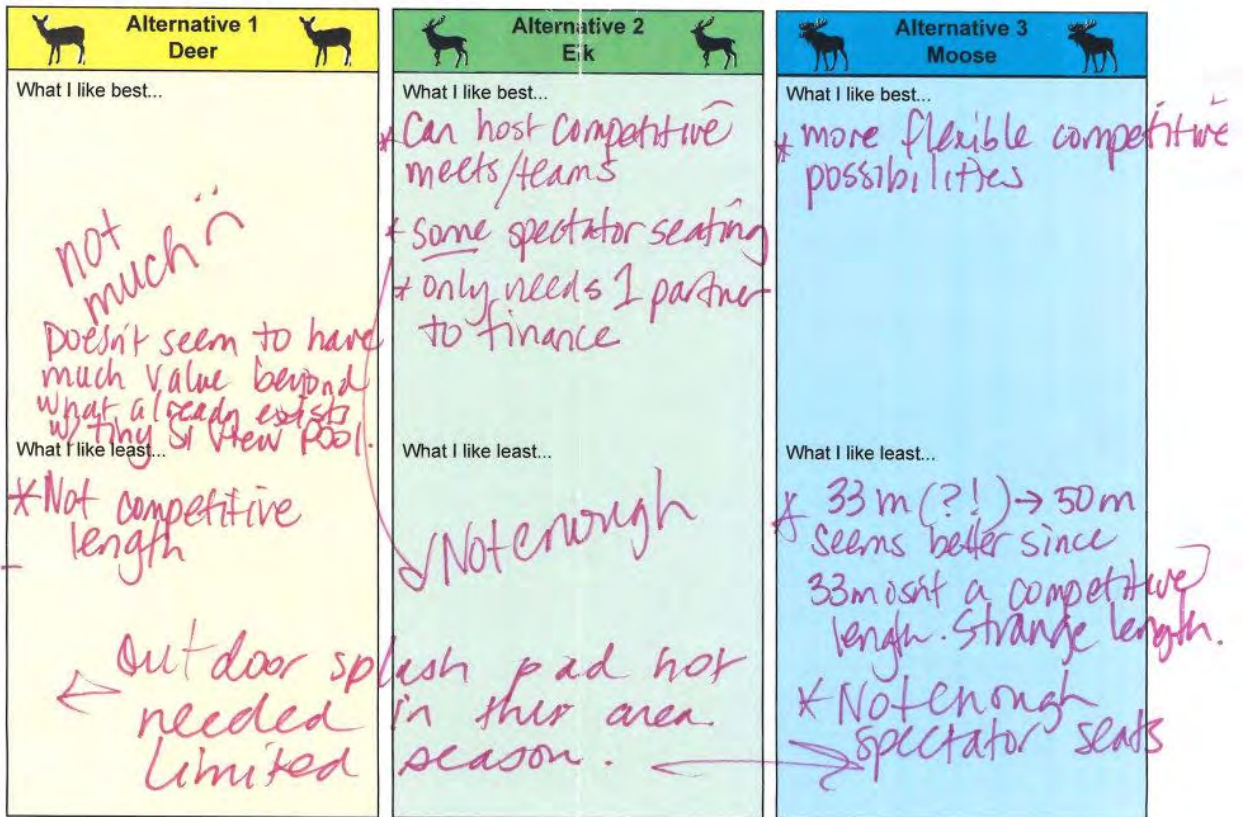 Alternative 1
Deer
What I like best...
not
much
Doesn't seem to have
much value beyond
what already exists
w/ tiny Si View Pool.
What I like least...
* Not competitive
length
Alternative 2
Elk
What I like best...
* Can host competitive
meets/teams
* some spectator seating
* only needs 1 partner
to finance
What I like least...
Not enough
Alternative 3
Moose
What I like best...
* more flexible competitive
possibilities
What I like least...
* 33 m (?!) → 50 m
seems better since
33m isn't a competitive
length. Strange length.
* Not enough
spectator seats
Outdoor splash pad not
needed in this area.
Limited season.